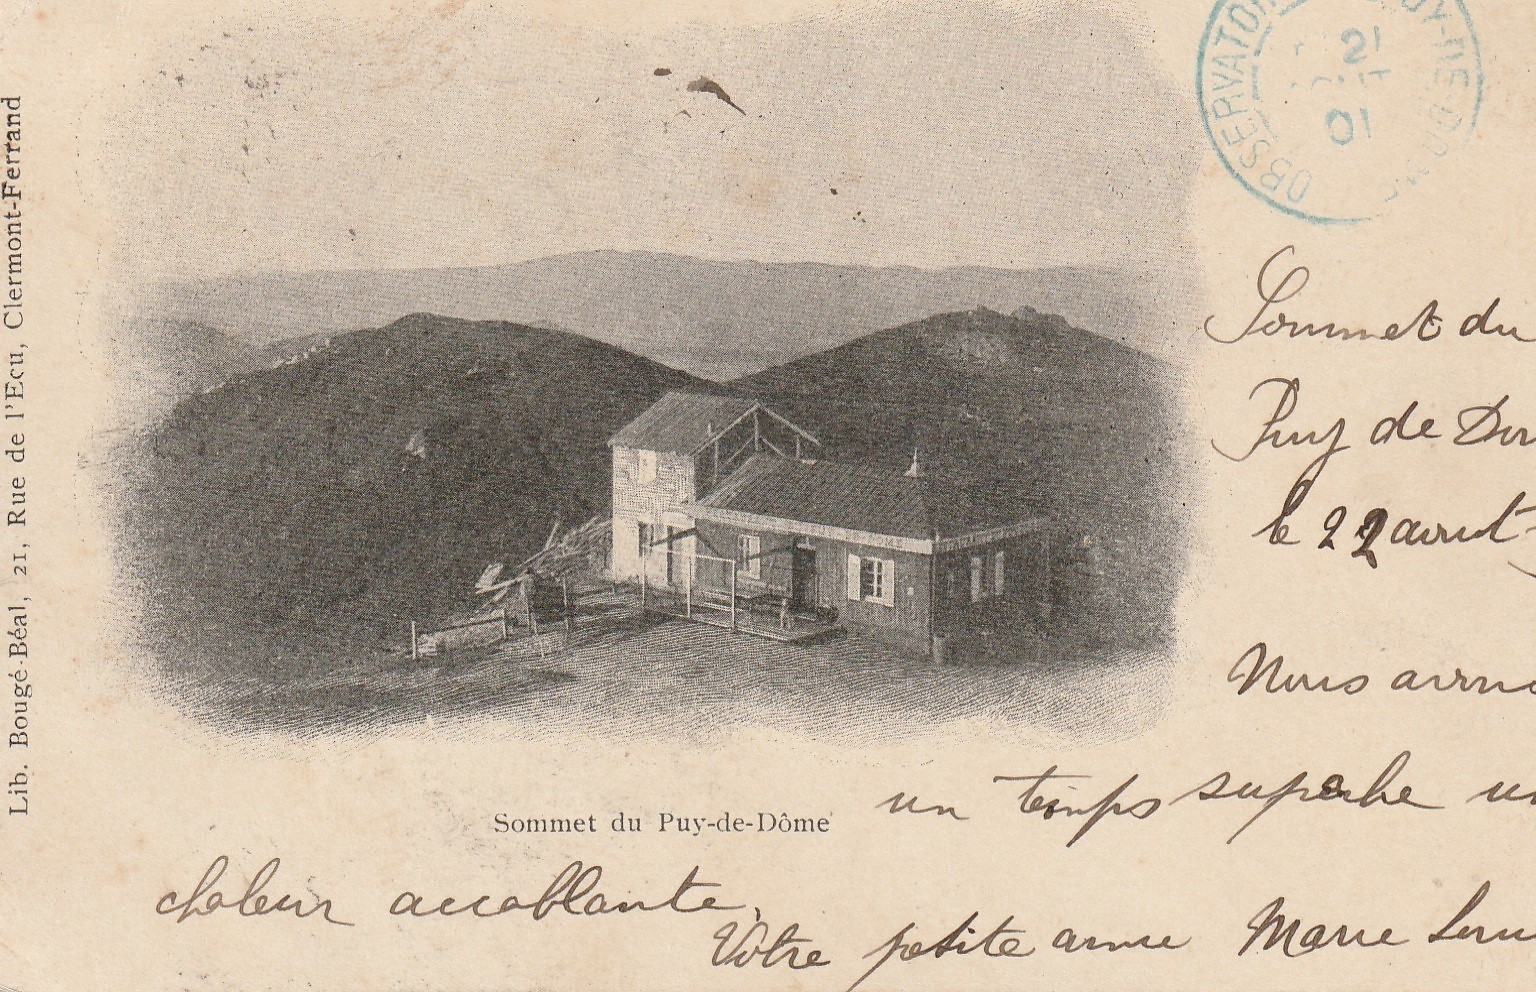 OBSERVATOIRE PUY-DE-DOME
21
AOUT
01
Lib. Bougé-Béal, 21, Rue de l'Ecu, Clermont-Ferrand
Sommet du
Puy de Dô
le 22 août
Nous avons
un temps superbe un
Sommet du Puy-de-Dôme
chaleur accablante.
Votre petite amie Marie